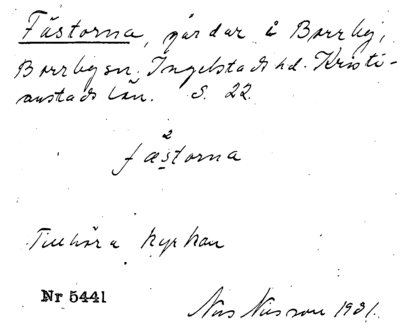 Fästorna, gårdar i Borrby,
Borrby sn. Ingelstads hd. Kristi-
anstads län. S. 22.
2
fæstorna
Tillhöra kyrkan
Nr 5441
Nils Nilsson 1931.